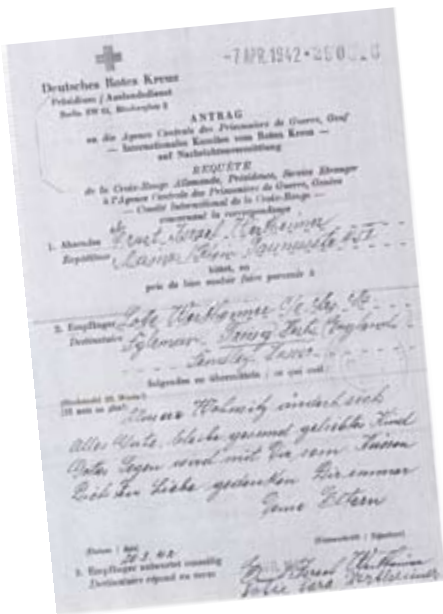 -7 APR. 1942
Deutsches Rotes Kreuz
Präsidium / Auslandsdienst
Berlin SW 61, Blücherplatz 2
ANTRAG
an die Agence Centrale des Prisonniers de Guerre, Genf
— Internationales Komitee vom Roten Kreuz —
auf Nachrichtenvermittlung
REQUÊTE
de la Croix-Rouge Allemande, Présidence, Service Etranger
à l'Agence Centrale des Prisonniers de Guerre, Genève
— Comité International de la Croix-Rouge —
concernant la correspondance
1. Absender Ernst Israel Wertheimer
Expéditeur Mainz
bittet, an
prie de bien vouloir faire parvenir à
2. Empfänger Wertheimer
Destinataire England
folgendes zu übermitteln / ce qui suit:
(Höchstzahl 25 Worte!)
(25 mots au plus!)
Unser Wohnsitz ändert sich
Alles Gute, bleibe gesund geliebtes Kind
Gottes Segen mit Dir
Dich in Liebe gedenken Dir immer
Deine Eltern
(Datum / date)
(Unterschrift / Signature)
3. Empfänger antwortet umseitig
Destinataire répond au verso
Israel Wertheimer
Sara Wertheimer